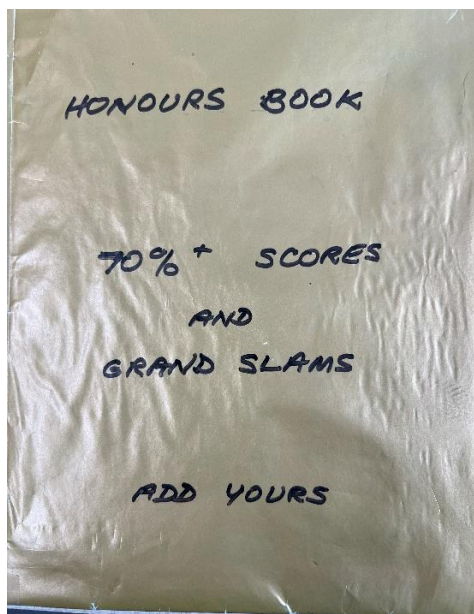 HONOURS BOOK
70%+ SCORES
AND
GRAND SLAMS
ADD YOURS